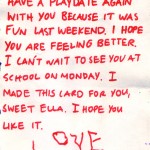 HAVE A PLAYDATE AGAIN
WITH YOU BECAUSE IT WAS
FUN LAST WEEKEND. I HOPE
YOU ARE FEELING BETTER.
I CAN'T WAIT TO SEE YOU AT
SCHOOL ON MONDAY. I
MADE THIS CARD FOR YOU,
SWEET ELLA. I HOPE YOU
LIKE IT.
LOVE